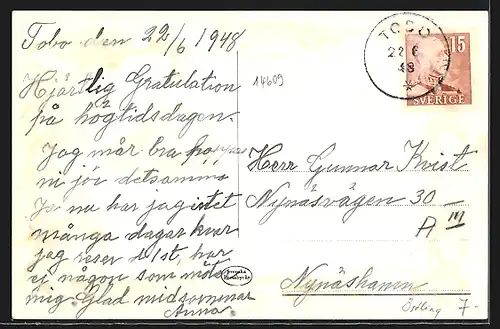 Tobo den 22/6 1948
Hjärtlig Gratulation
på högtidsdagen.
Jag mår bra hoppas
ni jör detsamma
Ja nu har jag intet
många dagar kvar
jag reser d 1st, har
ni någon som möter
mig. Glad midsommar
Anna.
14609
TOBO
22 6
48
15
SVERIGE
Herr Gunnar Kvist
Nynäsvägen 30 –
A III
Nynäshamn
Östling 7-
Svenska